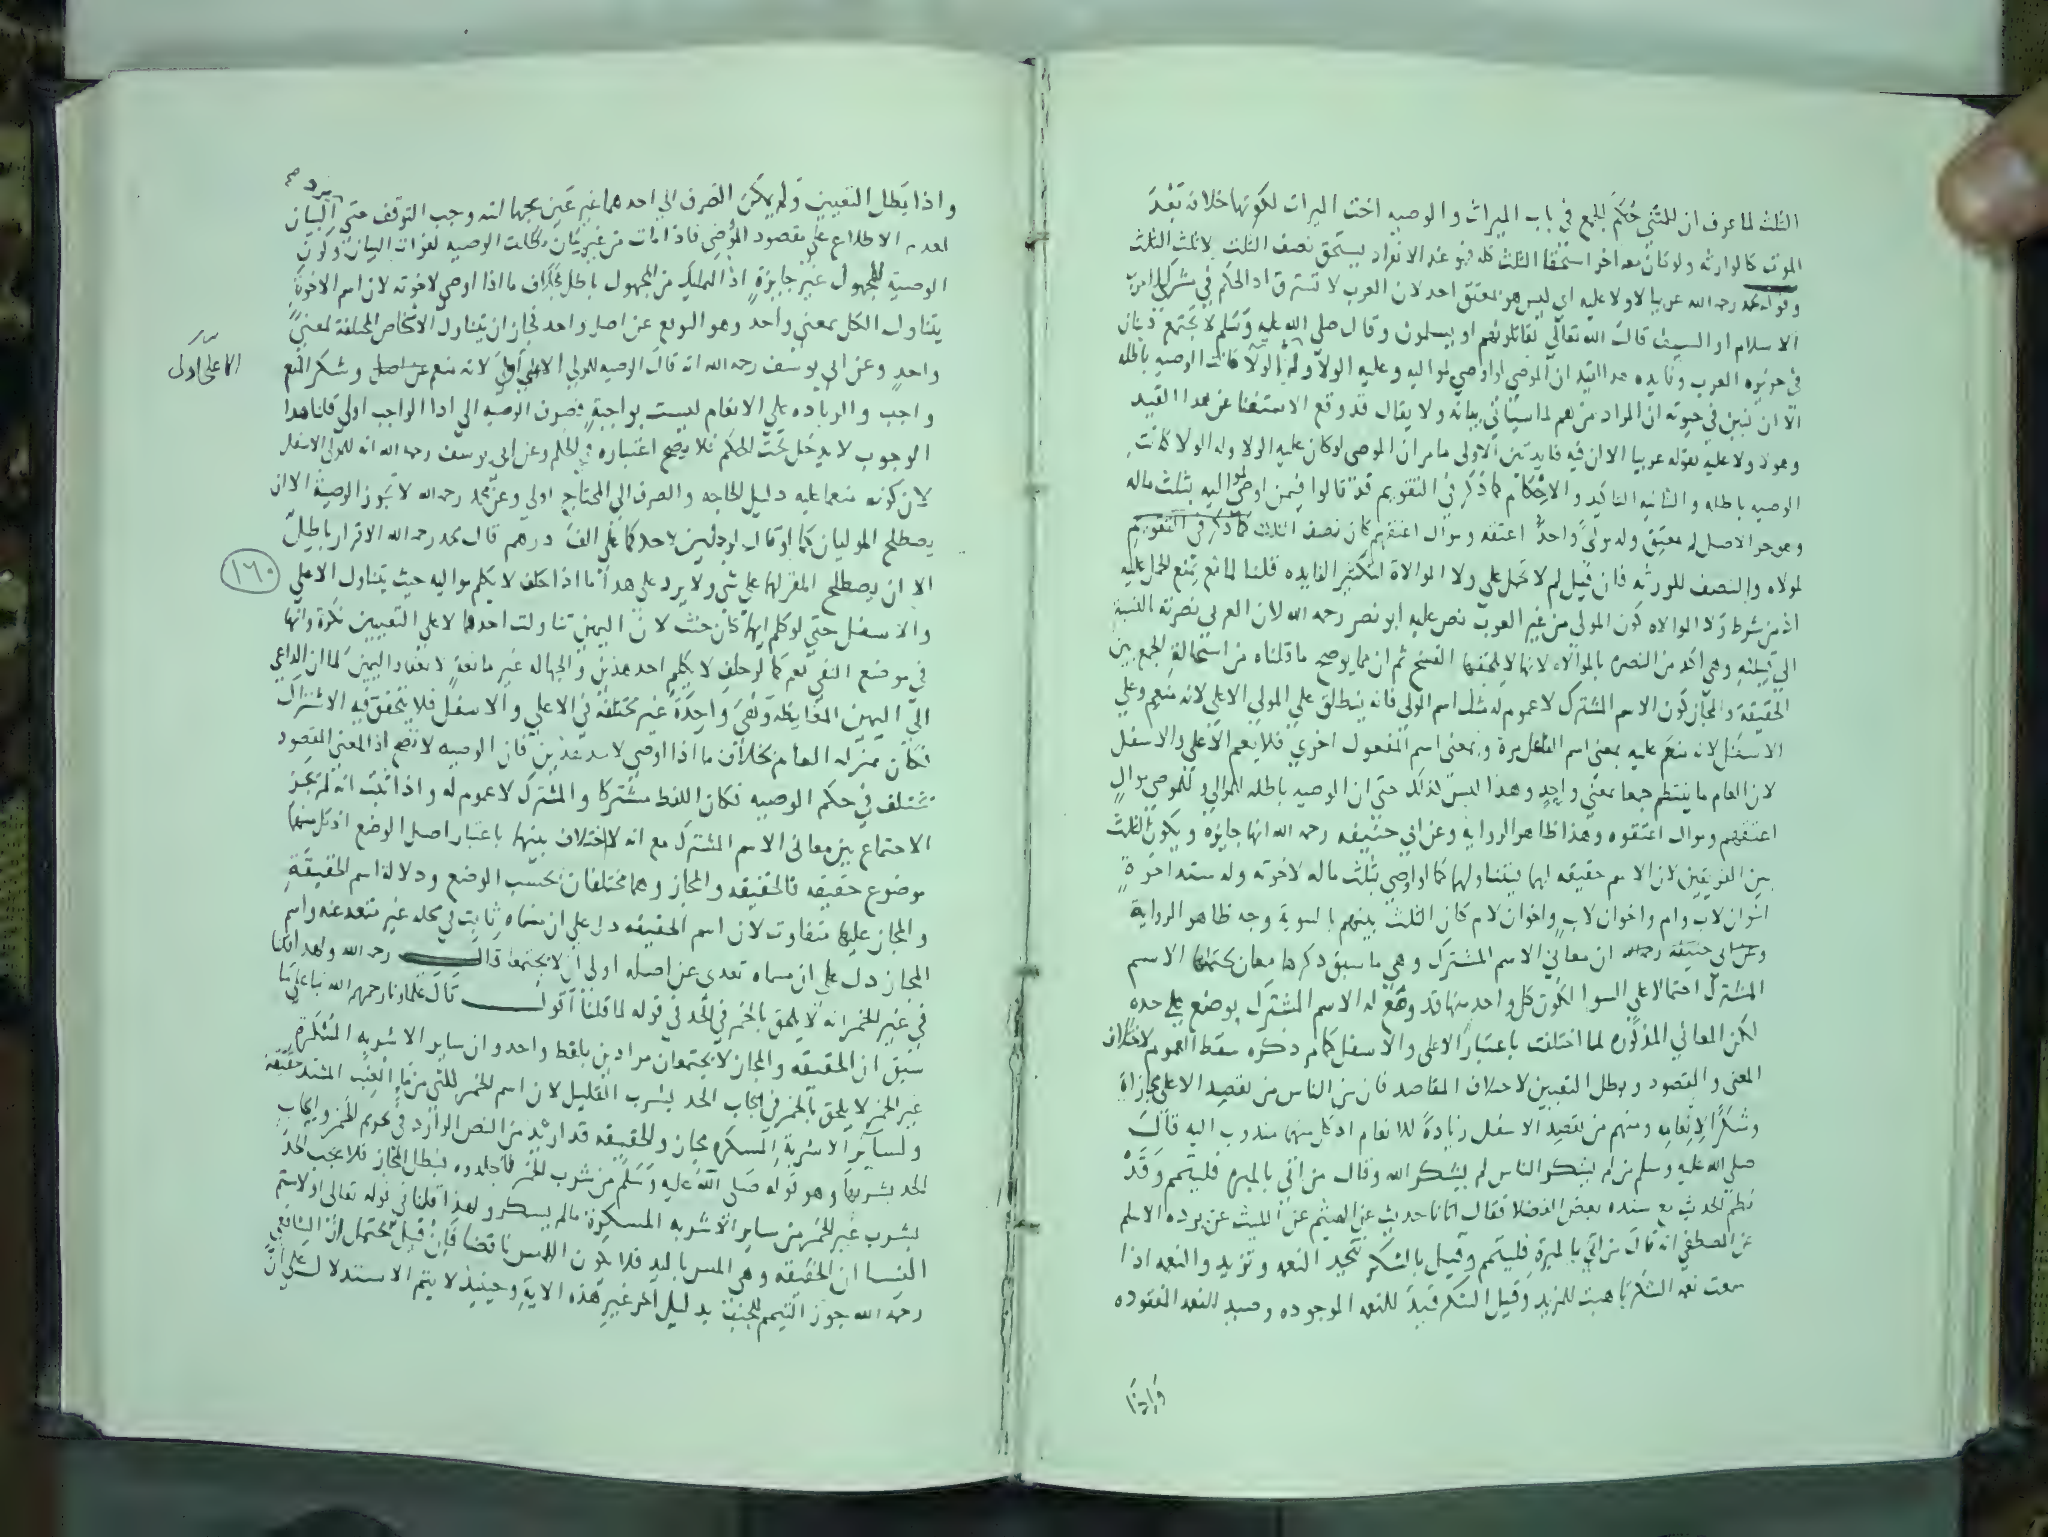 الثلث لما عرف ان للمثنى حكم الجمع في باب الميراث والوصيه اخت الميراث لكونها خلافة بعد
الموت كالوارثه ولو كان معه اخر استحقا الثلث كله فهو عند الانفراد يستحق نصف الثلث لا ثلث الثلث
وقوله محمد رحمه الله عربيا لا ولا عليه اي ليس هو بمعتق احد لان العرب لا تسترق اذ الحكم في مشركي العرب
الاسلام او السيف قال الله تعالى تقاتلونهم او يسلمون وقال صلى الله عليه وسلم لا يجتمع دينان
في جزيره العرب وفايده هذا القيد ان الموصى لو اوصى لمواليه وعليه الولا وله الولا كانت الوصيه باطله
الا ان يبين في حيوته ان المراد من هم لما سياتي بيانه ولا يقال قد وقع الاستغنا عن هذا القيد
وهو لا ولا عليه بقوله عربيا لان فيه فايدتين الاولى ما مر ان الموصى لو كان عليه الولا وله الولا كانت
الوصيه باطله والثانيه التاكيد والاحكام كما ذكر في التقويم قد قالوا فيمن اوصى لمواليه بثلث ماله
وهو حر الاصل له معتق وله مولى واحد اعتقه وموال اعتقهم كان نصف الثلث كما ذكر في التقويم
لمولاه والنصف للورثه فان قيل لم لا تحمل على ولا الموالاة لتكثير الفايده قلنا لمانع يمنع الحمل عليه
اذ من شرط ولا الموالاه كون المولى من غير العرب نص عليه ابو نصر رحمه الله لان العربي نصرته بالنسبة
الى قبيلته وهي اكد من النصره بالموالاه لانها لا يلحقها الفسخ ثم ان مما يوضح ما قلناه من استحالة الجمع بين
الحقيقة والمجاز كون الاسم المشترك لا عموم له مثل اسم المولى فانه ينطلق على المولى الاعلى لانه منعم وعلى
الاسفل لانه منعم عليه بمعنى اسم الفاعل مرة وبمعنى اسم المفعول اخرى فلا يعم الاعلى والاسفل
لان العام ما ينتظم جمعا بمعنى واحد وهذا ليس كذلك حتى ان الوصيه باطله للموالي وللموصى موال
اعتقهم وموال اعتقوه وهذا ظاهر الرواية وعن ابي حنيفه رحمه الله انها جايزة ويكون الثلث
بين الفريقين لان الاسم حقيقه لهما يتناولهما كما لو اوصى بثلث ماله لاخوته وله سته اخوة
اخوان لاب وام واخوان لاب واخوان لام كان الثلث بينهم بالسوية وجه ظاهر الرواية
وعن ابي حنيفة رحمه الله ان معاني الاسم المشترك وهي ما سبق ذكرها معان يحتملها الاسم
المشترك احتمالا على السوا لكون كل واحد منها قد وضع له الاسم المشترك بوضع على حده
لكن المعاني المذكوره لما اختلفت باعتبار الاعلى والاسفل كما مر ذكره سقط العموم لاختلاف
المعنى والمقصود وبطل التعيين لاختلاف المقاصد فان من الناس من يقصد الاعلى مجازاة
وشكرا لانعامه ومنهم من يقصد الاسفل زيادة للانعام اذ كل منهما مندوب اليه قال
صلى الله عليه وسلم من لم يشكر الناس لم يشكر الله وقال من اتى بالمبره فليتمم وقد
نظم الحديث مع سنده بعض الفضلا فقال اتانا حديث عن الهيثم عن الليث عن برده الاسلم
عن المصطفى انه قال من اتى بالمبرة فليتمم وقيل بالشكر تتجدد النعم وتزيد والنعمه اذا
سمعت نغم الشكر تاهبت للمزيد وقيل الشكر قيد للنعم الموجوده وصيد للنعم المفقوده
واذا
واذا بطل التعيين ولم يمكن الصرف الى احدهما غير عين بجهالته وجب التوقف حتى يرد البيان
لعدم الاطلاع على مقصود الموصى فاذا مات من غير بيان بطلت الوصيه لفوات البيان وكون
الوصية للمجهول غير جايزة اذ التمليك من المجهول باطل بخلاف ما اذا اوصى لاخوته لان اسم الاخوة
يتناول الكل بمعنى واحد وهو التفرع عن اصل واحد فجاز ان يتناول الاشخاص المختلفة لمعنى
واحد وعن ابي يوسف رحمه الله انه قال الوصيه للمولى الاعلى اولى لانه منعم وشكر المنعم
الاعلى اولى
واجب والزياده على الانعام ليست بواجبة فصرف الوصيه الى ادا الواجب اولى قلنا هذا
الوجوب لا يدخل تحت الحكم فلا يصح اعتباره في الحكم وعن ابي يوسف رحمه الله انه للمولى الاسفل
لان كونه منعما عليه دليل الحاجه والصرف الى المحتاج اولى وعن محمد رحمه الله لا يجوز الوصية الا ان
يصطلح الموليان كما لو قال لرجلين لاحدكما على الف درهم قال محمد رحمه الله الاقرار باطل
الا ان يصطلح المقر لهما على شي ولا يرد على هذا ما اذا حلف لا يكلم مواليه حيث يتناول الاعلى
١٦٠
والاسفل حتى لو كلم ايهما كان حنث لان اليمين تناولت احدهما لا على التعيين نكرة وانها
في موضع النفي تعم كما لو حلف لا يكلم احد هذين والجهاله غير مانعة لانعقاد اليمين كما ان الداعي
الى اليمين المغايظه وهي واحدة غير مختلفة في الاعلى والاسفل فلا يتحقق فيه الاشتراك
فكان بمنزله العام بخلاف ما اذا اوصى لاحد هذين فان الوصيه لا تصح اذ المعنى المقصود
تختلف في حكم الوصيه فكان اللفظ مشتركا والمشترك لا عموم له واذا ثبت انه لم يجز
الاجتماع بين معاني الاسم المشترك مع انه لا اختلاف بينها باعتبار اصل الوضع اذ كل منهما
موضوع حقيقه فالحقيقه والمجاز وهما مختلفان بحسب الوضع ودلالة اسم الحقيقة
والمجاز عليهما متفاوت لان اسم الحقيقه دل على ان مسماه ثابت في محله غير متعد عنه واسم
المجاز دل على ان مسماه تعدى عن اصله اولى ان لا يجتمعا قال رحمه الله ولهذا قلنا
في غير الخمر انه لا يلحق بالخمر في الحد في قوله لما قلنا اقول قال علماونا رحمهم الله بنا على ما
سبق ان الحقيقه والمجاز لا يجتمعان مرادين بلفظ واحد وان ساير الاشربه المسكرة
غير الخمر لا يلحق بالخمر في ايجاب الحد بشرب القليل لان اسم الخمر للني من ما العنب المشتد حقيقة
ولساير الاشربة المسكره مجاز والحقيقه قد اريد من النص الوارد في تحريم الخمر وايجاب
الحد بشربها وهو قوله صلى الله عليه وسلم من شرب الخمر فاجلدوه فبطل المجاز فلا يجب الحد
بشرب غير الخمر من ساير الاشربه المسكرة ما لم يسكر ولهذا قلنا في قوله تعالى او لامستم
النسا ان الحقيقه وهي المس باليد فلا يكون اللمس ناقضا فان قيل يحتمل ان الشافعي
رحمه الله جوز التيمم للجنب بدليل اخر غير هذه الاية وحينيذ لا يتم الاستدلال على ان